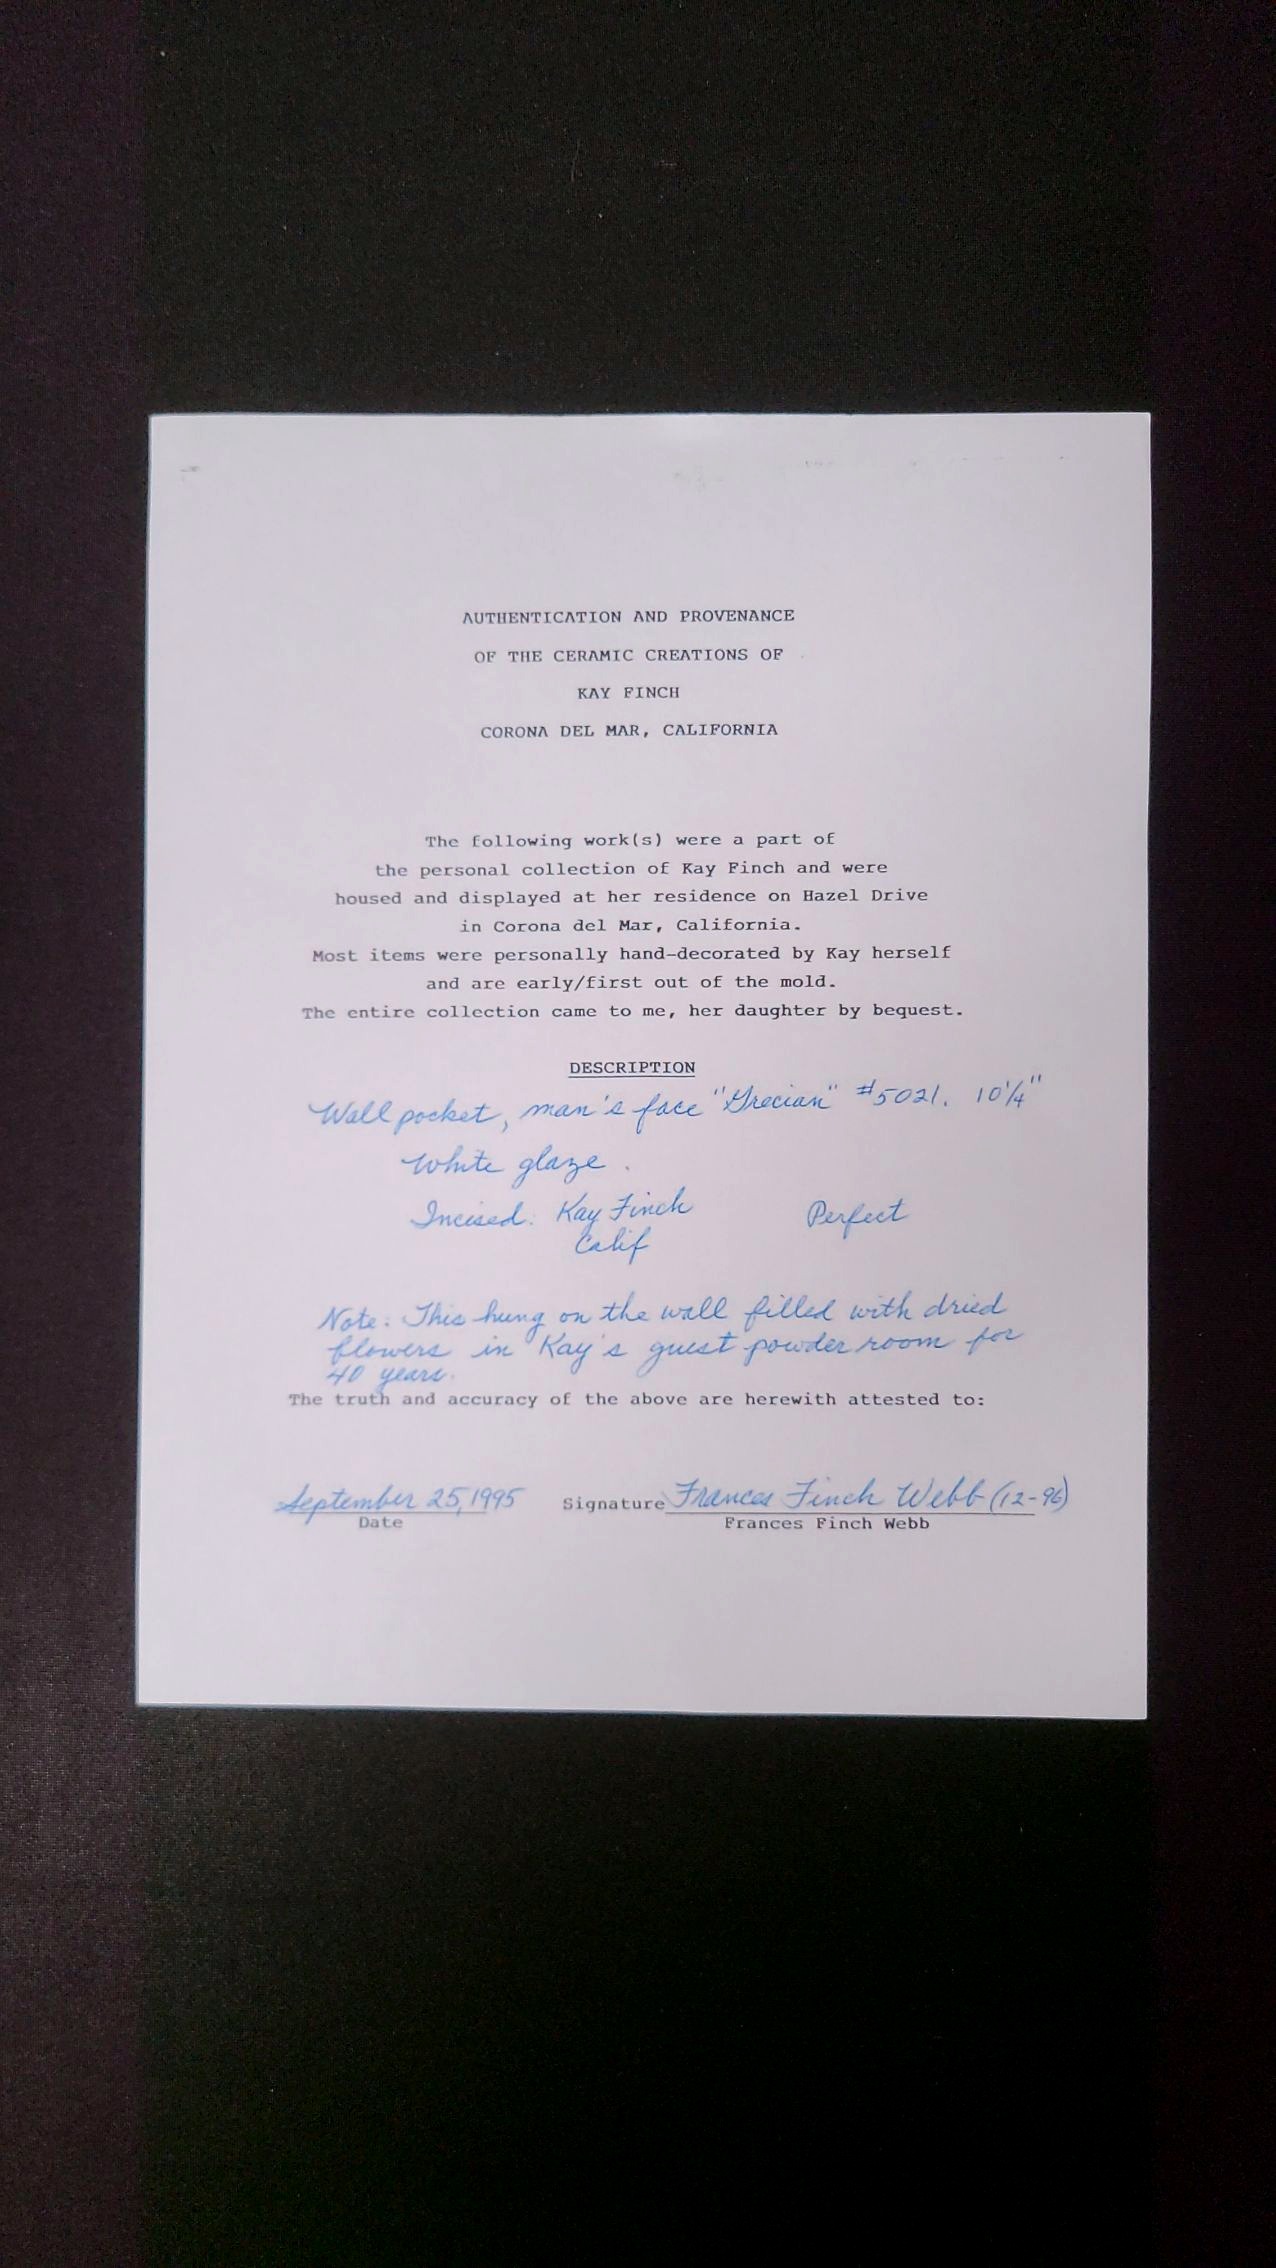 AUTHENTICATION AND PROVENANCE
OF THE CERAMIC CREATIONS OF
KAY FINCH
CORONA DEL MAR, CALIFORNIA
The following work(s) were a part of
the personal collection of Kay Finch and were
housed and displayed at her residence on Hazel Drive
in Corona del Mar, California.
Most items were personally hand-decorated by Kay herself
and are early/first out of the mold.
The entire collection came to me, her daughter by bequest.
DESCRIPTION
Wall pocket, man's face "Grecian" #5021. 10¼"
White glaze.
Incised: Kay Finch Perfect
Calif
Note: This hung on the wall filled with dried
flowers in Kay's guest powder room for
40 years.
The truth and accuracy of the above are herewith attested to:
September 25, 1995 Signature Frances Finch Webb (12-96)
Date Frances Finch Webb